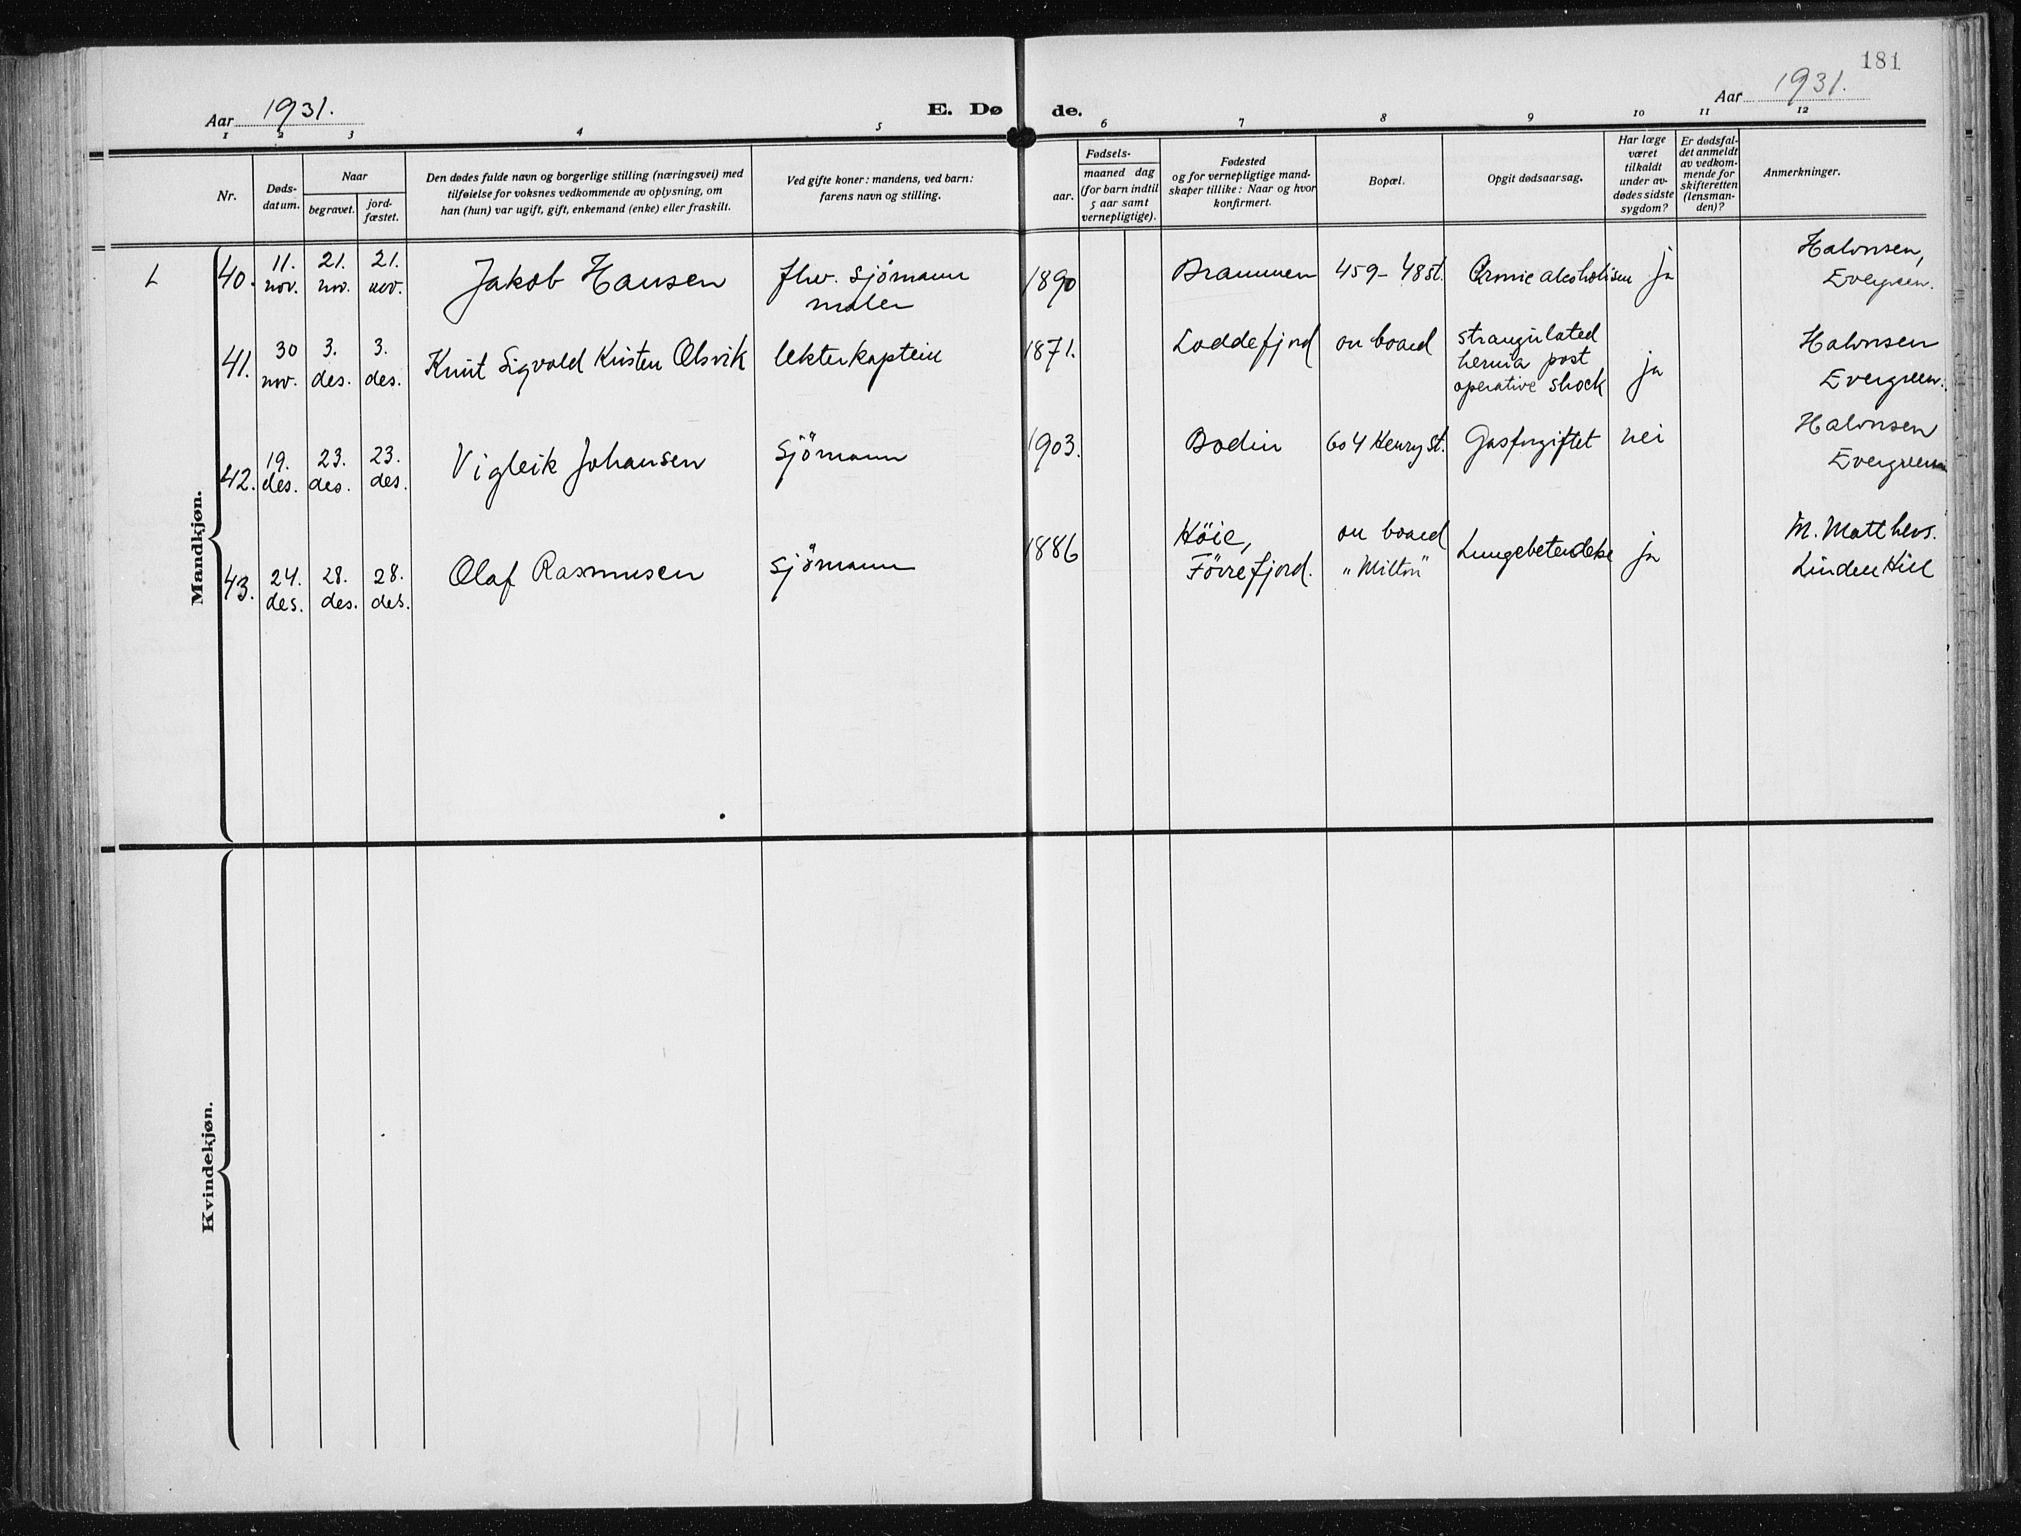 181
Aar 1931.
E. Døde.
Aar 1931.
1 2 3 4 5 6 7 8 9 10 11 12
Nr.
Døds-
datum.
Naar
begravet.
jord-
fæstet.
Den dødes fulde navn og borgerlige stilling (næringsvei) med
tilføielse for voksnes vedkommende av oplysning, om
han (hun) var ugift, gift, enkemand (enke) eller fraskilt.
Ved gifte koner: mandens, ved barn:
farens navn og stilling.
Fødsels-
aar.
maaned dag
(for barn indtil
5 aar samt
vernepligtige).
Fødested
og for vernepligtige mand-
skaper tillike: Naar og hvor
konfirmert.
Bopæl.
Opgit dødsaarsag.
Har læge
været
tilkaldt
under av-
dødes sidste
sygdom?
Er dødsfal-
det anmeldt
av vedkom-
mende for
skifteretten
(lensman-
den)?
Anmerkninger.
Mandkjøn.
L
40.
11.
nov.
21.
nov.
21.
nov.
Jakob Hansen
fhv. sjömann
maler
1890
Drammen
459-48 st.
ja
Halvorsen,
Evergreen.
41.
30
nov.
3.
des.
3.
des.
Knut Sigvald Kristen Olsvik
lekterkaptein
1871.
Loddefjord
on board
strangulated
hernia post
operative shock
ja
Halvorsen
Evergreen.
42.
19.
des.
23.
des.
23.
des.
Vigleik Johansen
sjömann
1903.
Bodin
604 Henry st.
Gasforgiftet
nei
Halvorsen
Evergreen
43.
24.
des.
28.
des.
28.
des.
Olaf Rasmussen
sjömann
1886
Höie,
Förrefjord.
on board
"Milton"
Lungebetendelse
ja
M. Matthews.
Linden Hill
Kvindekjøn.